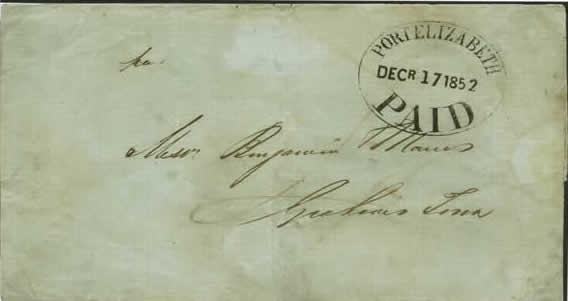 PORT ELIZABETH
DECR 17 1852
PAID
Messrs Benjamin
Grahams Town